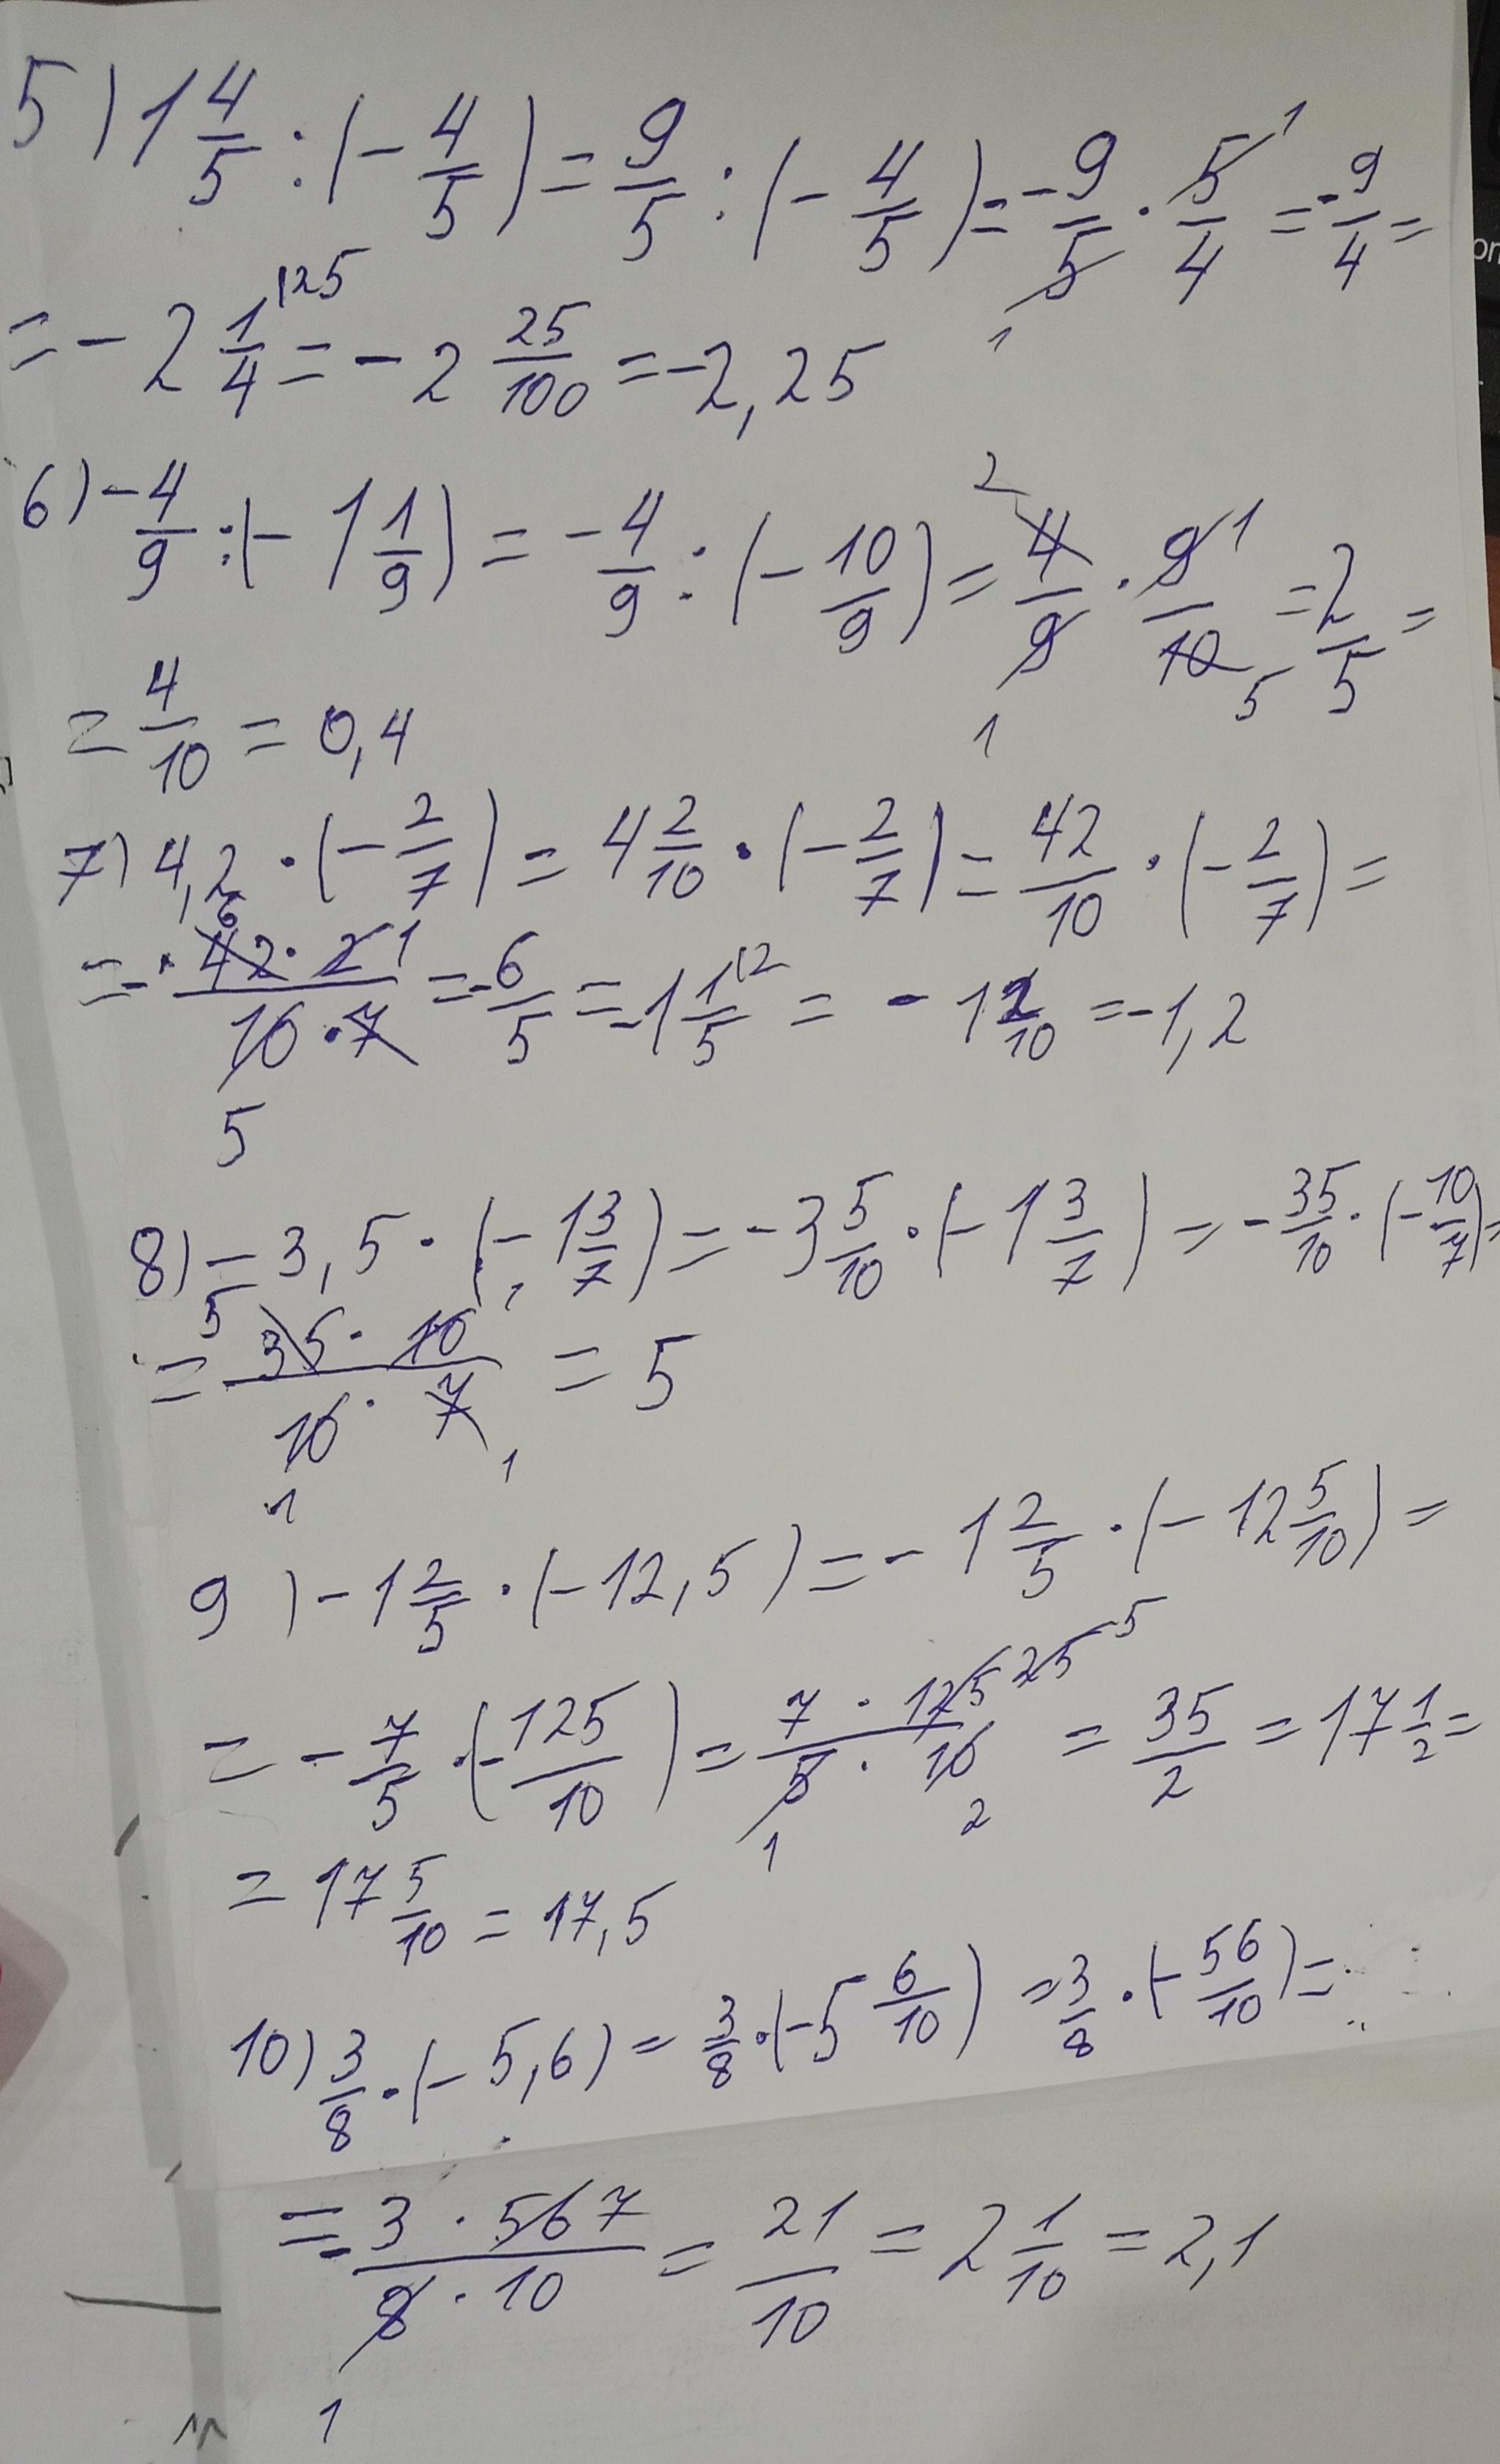 5) 1 4/5 : (- 4/5) = 9/5 : (- 4/5) = - 9/5 1 · 5/4 1 = - 9/4 =
= - 2 1/4 |25 = - 2 25/100 = - 2,25
6) - 4/9 : (- 1 1/9) = - 4/9 : (- 10/9) = 2 4/9 1 · 9/10 1 5 = 2/5 =
= 4/10 = 0,4
7) 4,2 · (- 2/7) = 4 2/10 · (- 2/7) = 42/10 · (- 2/7) =
= - 6 42 · 2 1 / 10 · 7 5 = - 6/5 = - 1 1/5 |2 = - 1 2/10 = - 1,2
8) - 3,5 · (- 1 3/7) = - 3 5/10 · (- 1 3/7) = - 35/10 · (- 10/7) =
= 5 35 · 10 1 / 10 · 7 1 1 = 5
9) - 1 2/5 · (- 12,5) = - 1 2/5 · (- 12 5/10) =
= - 7/5 · (- 125/10) = 7 · 125 25 5 / 5 · 10 1 2 = 35/2 = 17 1/2 =
= 17 5/10 = 17,5
10) 3/8 · (- 5,6) = 3/8 · (- 5 6/10) = 3/8 · (- 56/10) =
= - 3 · 56 7 / 8 · 10 1 = 21/10 = 2 1/10 = 2,1